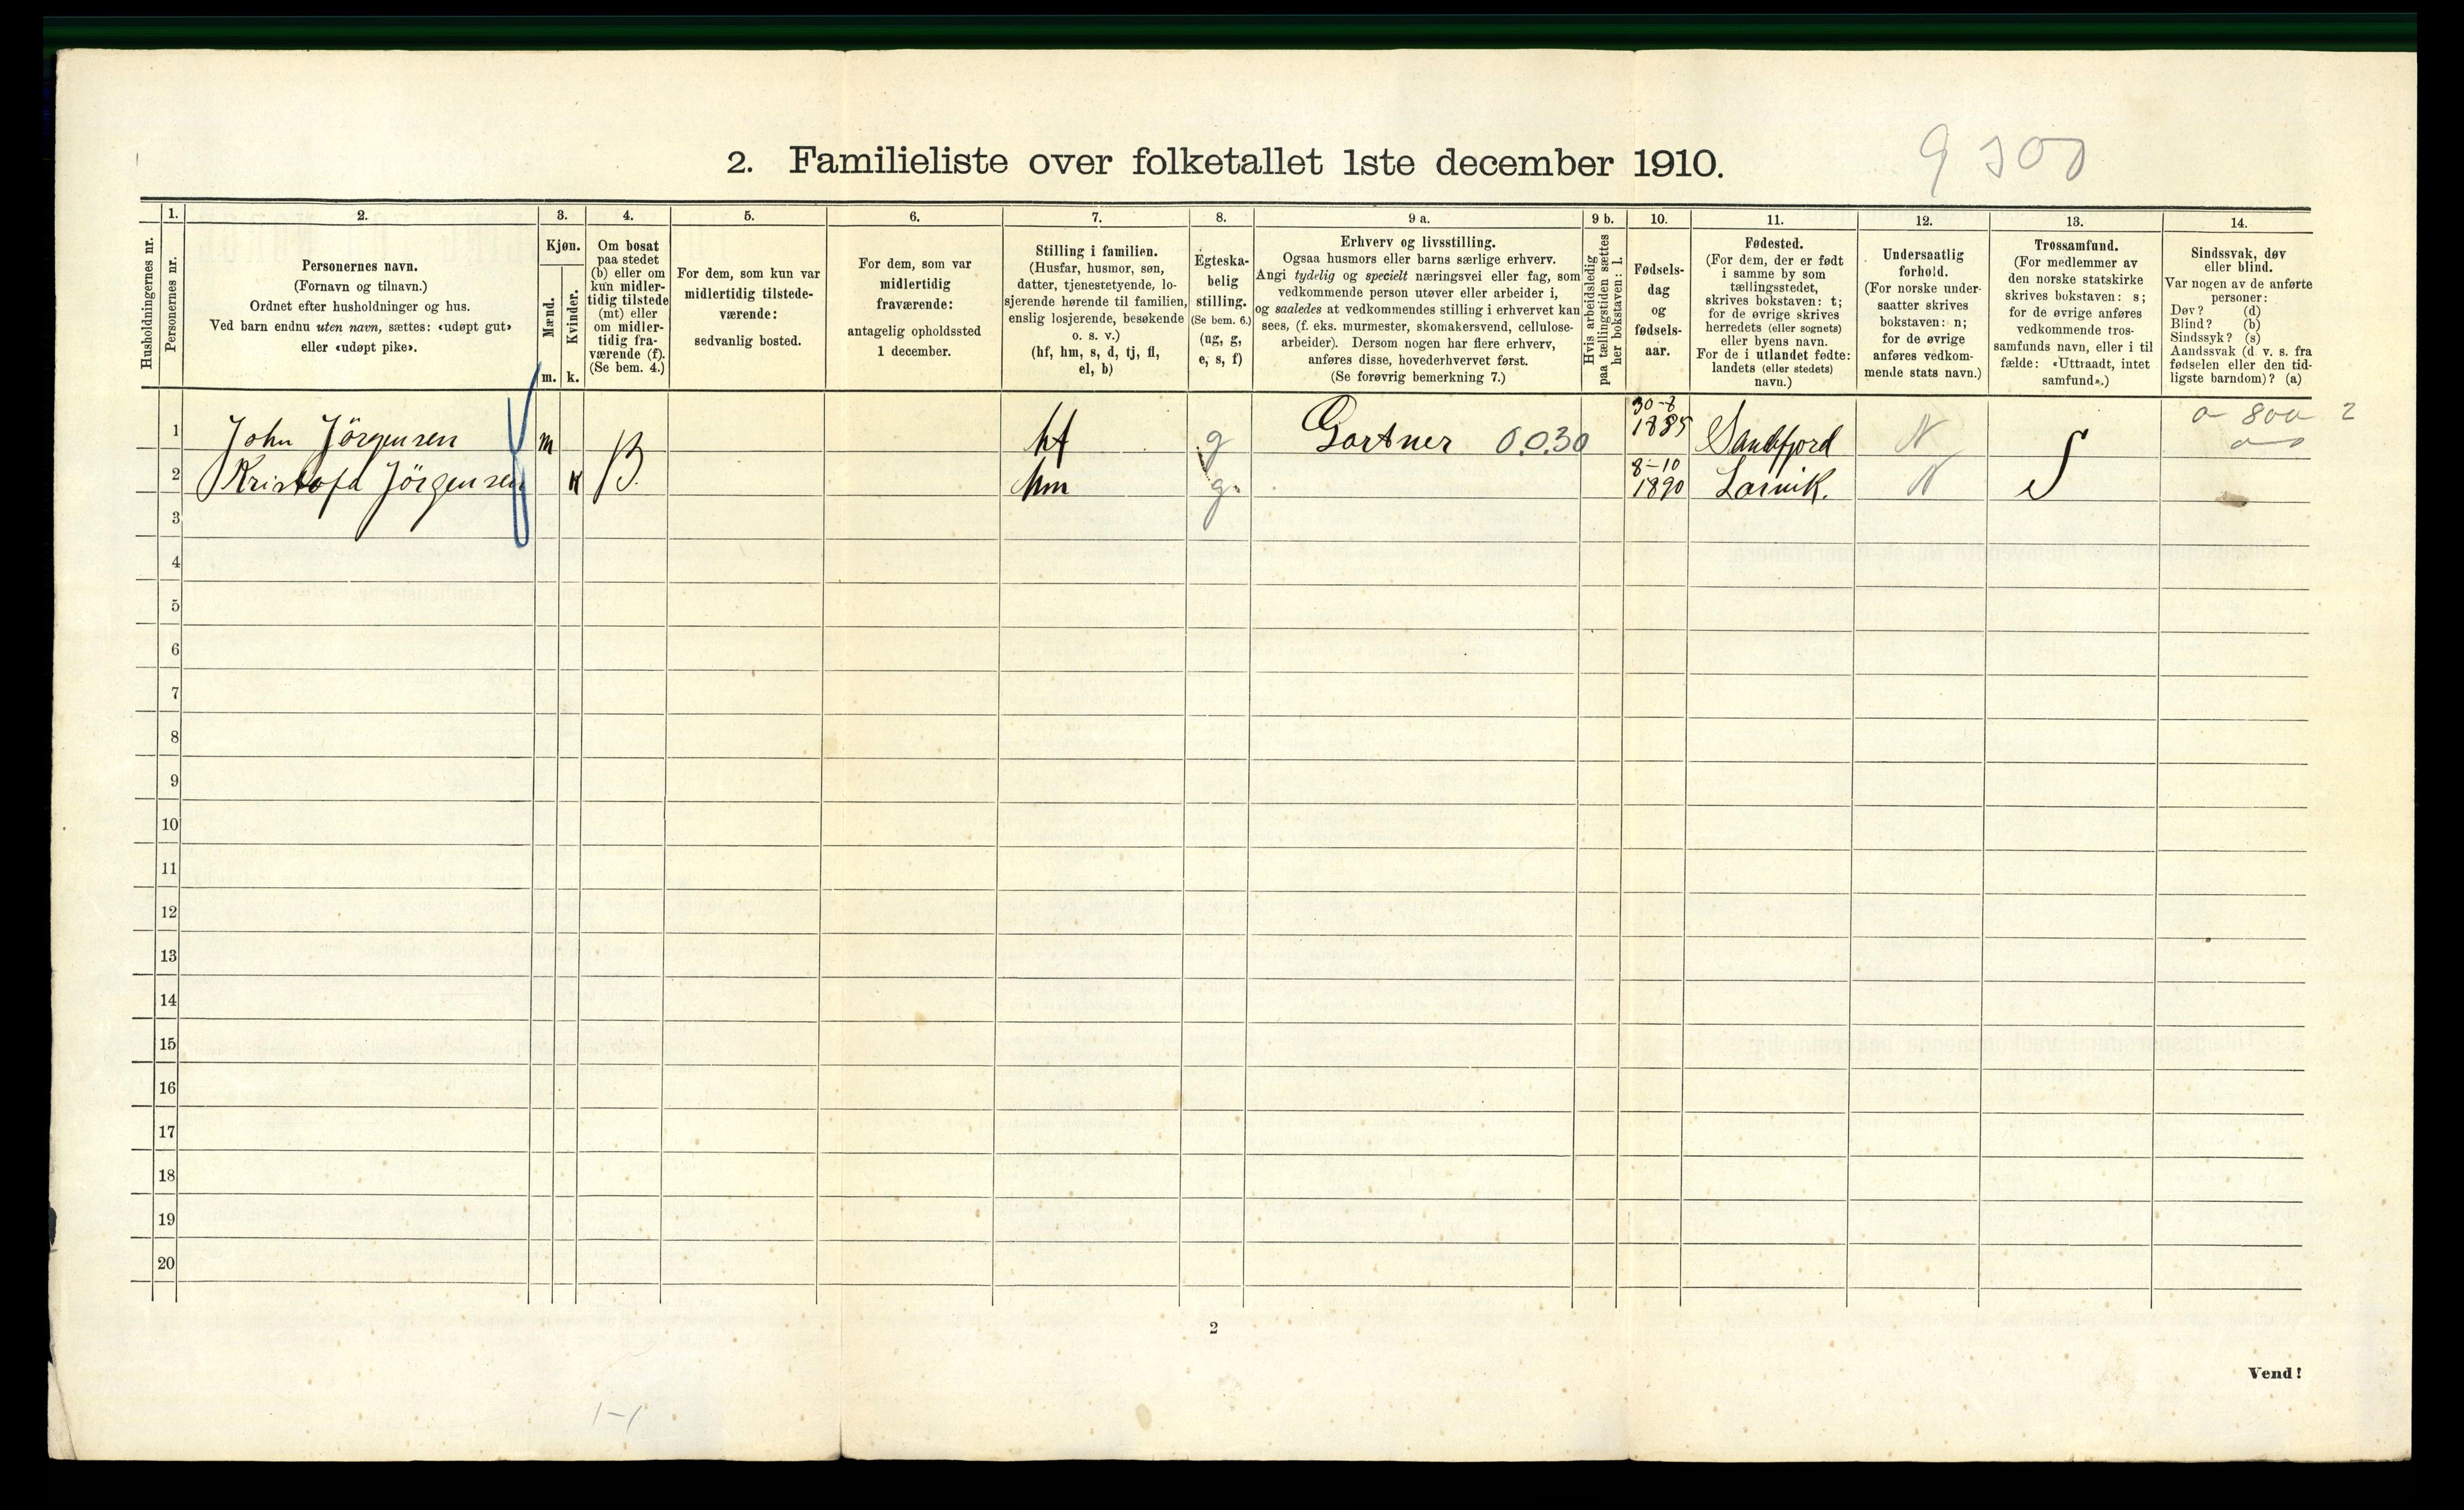 2. Familieliste over folketallet 1ste december 1910.
Husholdningernes nr.
1.
Personernes nr.
2.
Personernes navn.
(Fornavn og tilnavn.)
Ordnet efter husholdninger og hus.
Ved barn endnu uten navn, sættes: «udøpt gut»
eller «udøpt pike».
3.
Kjøn.
Mænd.
Kvinder.
m. k.
4.
Om bosat
paa stedet
(b) eller om
kun midler-
tidig tilstede
(mt) eller
om midler-
tidig fra-
værende (f).
(Se bem. 4.)
5.
For dem, som kun var
midlertidig tilstede-
værende:
sedvanlig bosted.
6.
For dem, som var
midlertidig
fraværende:
antagelig opholdssted
1 december.
7.
Stilling i familien.
(Husfar, husmor, søn,
datter, tjenestetyende, lo-
sjerende hørende til familien,
enslig losjerende, besøkende
o. s. v.)
(hf, hm, s, d, tj, fl,
el, b)
8.
Egteska-
belig
stilling.
(Se bem. 6.)
(ng, g,
e, s, f)
9 a.
Erhverv og livsstilling.
Ogsaa husmors eller barns særlige erhverv.
Angi tydelig og specielt næringsvei eller fag, som
vedkommende person utøver eller arbeider i,
og saaledes at vedkommendes stilling i erhvervet kan
sees, (f. eks. murmester, skomakersvend, cellulose-
arbeider). Dersom nogen har flere erhverv,
anføres disse, hovederhvervet først.
(Se forøvrig bemerkning 7.)
9 b.
Hvis arbeidsledig
paa tællingstiden sættes
her bokstaven: l.
10.
Fødsels-
dag
og
fødsels-
aar.
11.
Fødested.
(For dem, der er født
i samme by som
tællingsstedet,
skrives bokstaven: t;
for de øvrige skrives
herredets (eller sognets)
eller byens navn.
For de i utlandet fødte:
landets (eller stedets)
navn.)
12.
Undersaatlig
forhold.
(For norske under-
saatter skrives
bokstaven: n;
for de øvrige
anføres vedkom-
mende stats navn.)
13.
Trossamfund.
(For medlemmer av
den norske statskirke
skrives bokstaven: s;
for de øvrige anføres
vedkommende tros-
samfunds navn, eller i til
fælde: «Uttraadt, intet
samfund».)
14.
Sindssvak, døv
eller blind.
Var nogen av de anførte
personer:
Døv? (d)
Blind? (b)
Sindssyk? (s)
Aandssvak (d. v. s. fra
fødselen eller den tid-
ligste barndom)? (a)
1 John Jörgensen m B. hf g Gartner 0.0.30 30-8 1885 Sandefjord N S
2 Jörgensen K hm g. 8-10 1890 Larvik. N
3
4
5
6
7
8
9
10
11
12
13
14
15
16
17
18
19
20
2
Vend!
1-1